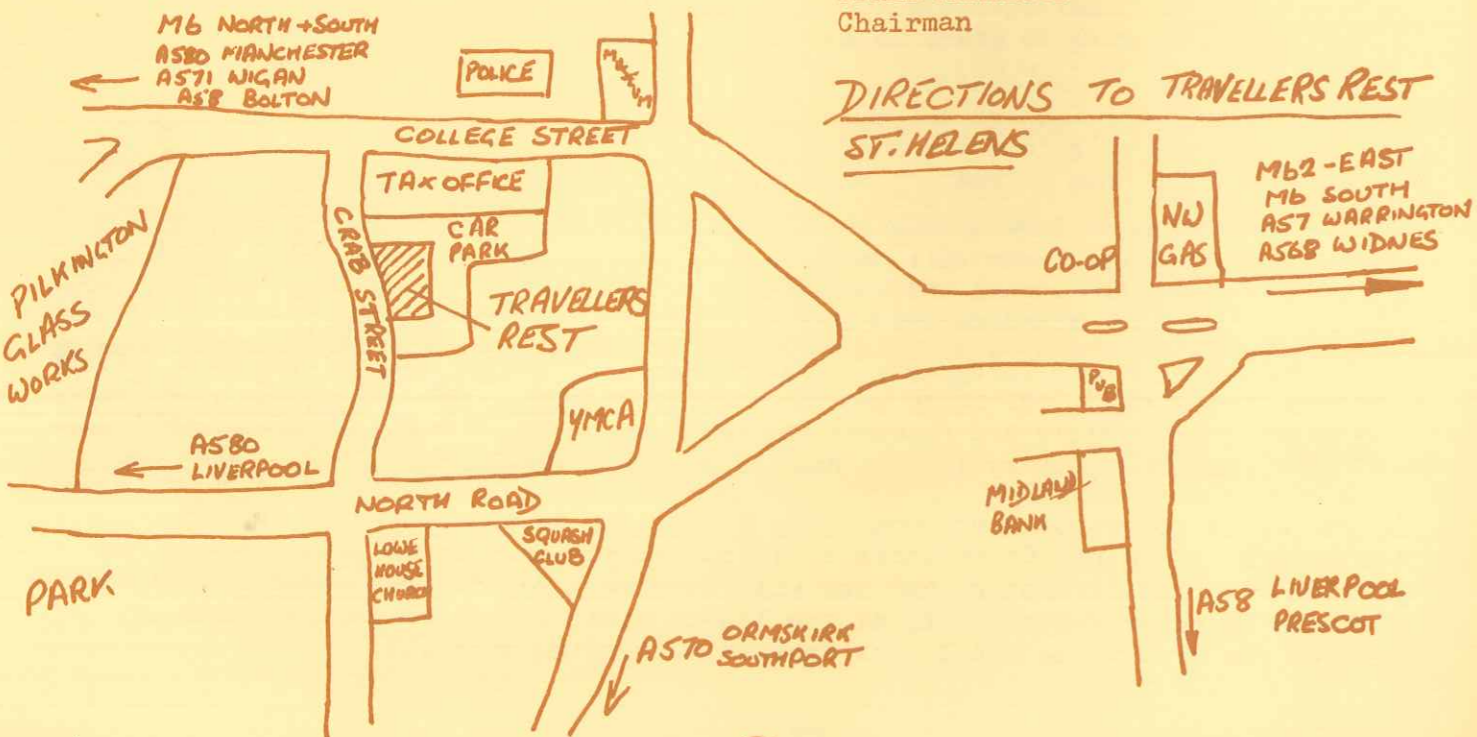 Chairman
DIRECTIONS TO TRAVELLERS REST
ST. HELENS
M6 NORTH + SOUTH
A580 MANCHESTER
A571 WIGAN
A58 BOLTON
POLICE
MUSEUM
COLLEGE STREET
TAX OFFICE
CAR
PARK
CRAB STREET
TRAVELLERS
REST
PILKINGTON
GLASS
WORKS
YMCA
A580
LIVERPOOL
NORTH ROAD
LOWE
HOUSE
CHURCH
SQUASH
CLUB
PARK
A570 ORMSKIRK
SOUTHPORT
CO-OP
NW
GAS
M62-EAST
M6 SOUTH
A57 WARRINGTON
A568 WIDNES
PUB
MIDLAND
BANK
A58 LIVERPOOL
PRESCOT